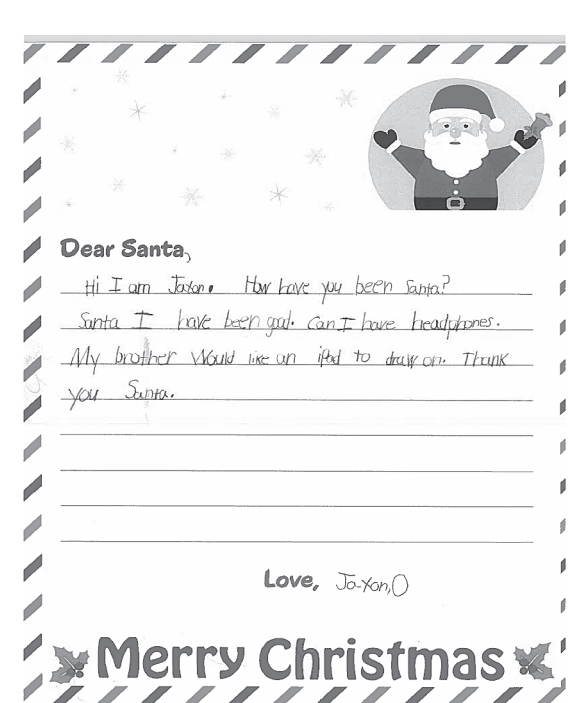 Dear Santa,
Hi I am Jaxon. How have you been Santa?
Santa I have been good. Can I have headphones.
My brother Would like an ipad to draw on. Thank
you Santa.
Love, Jaxon,O
Merry Christmas